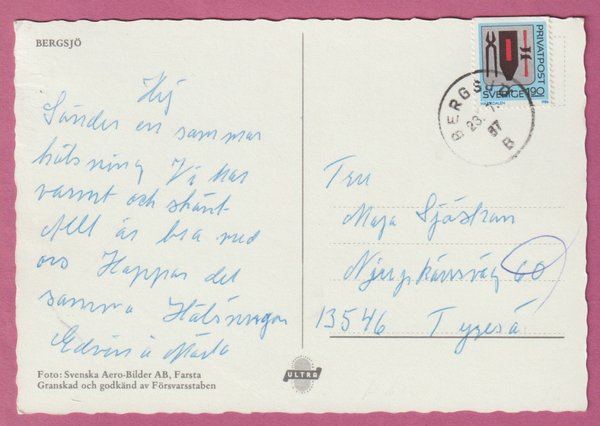 BERGSJÖ
Hej
Sänder en sommar
hälsning Vi har
varmt och skönt
Allt är bra med
oss Hoppas det
samma Hälsningar
Edvin o Märta
Foto: Svenska Aero-Bilder AB, Farsta
Granskad och godkänd av Försvarsstaben
ULTRA
PRIVATPOST
SVERIGE 190
BERGSJÖ
23. 7.
87
B
Fru
Maja Sjöstran
60
13546 Tyresö